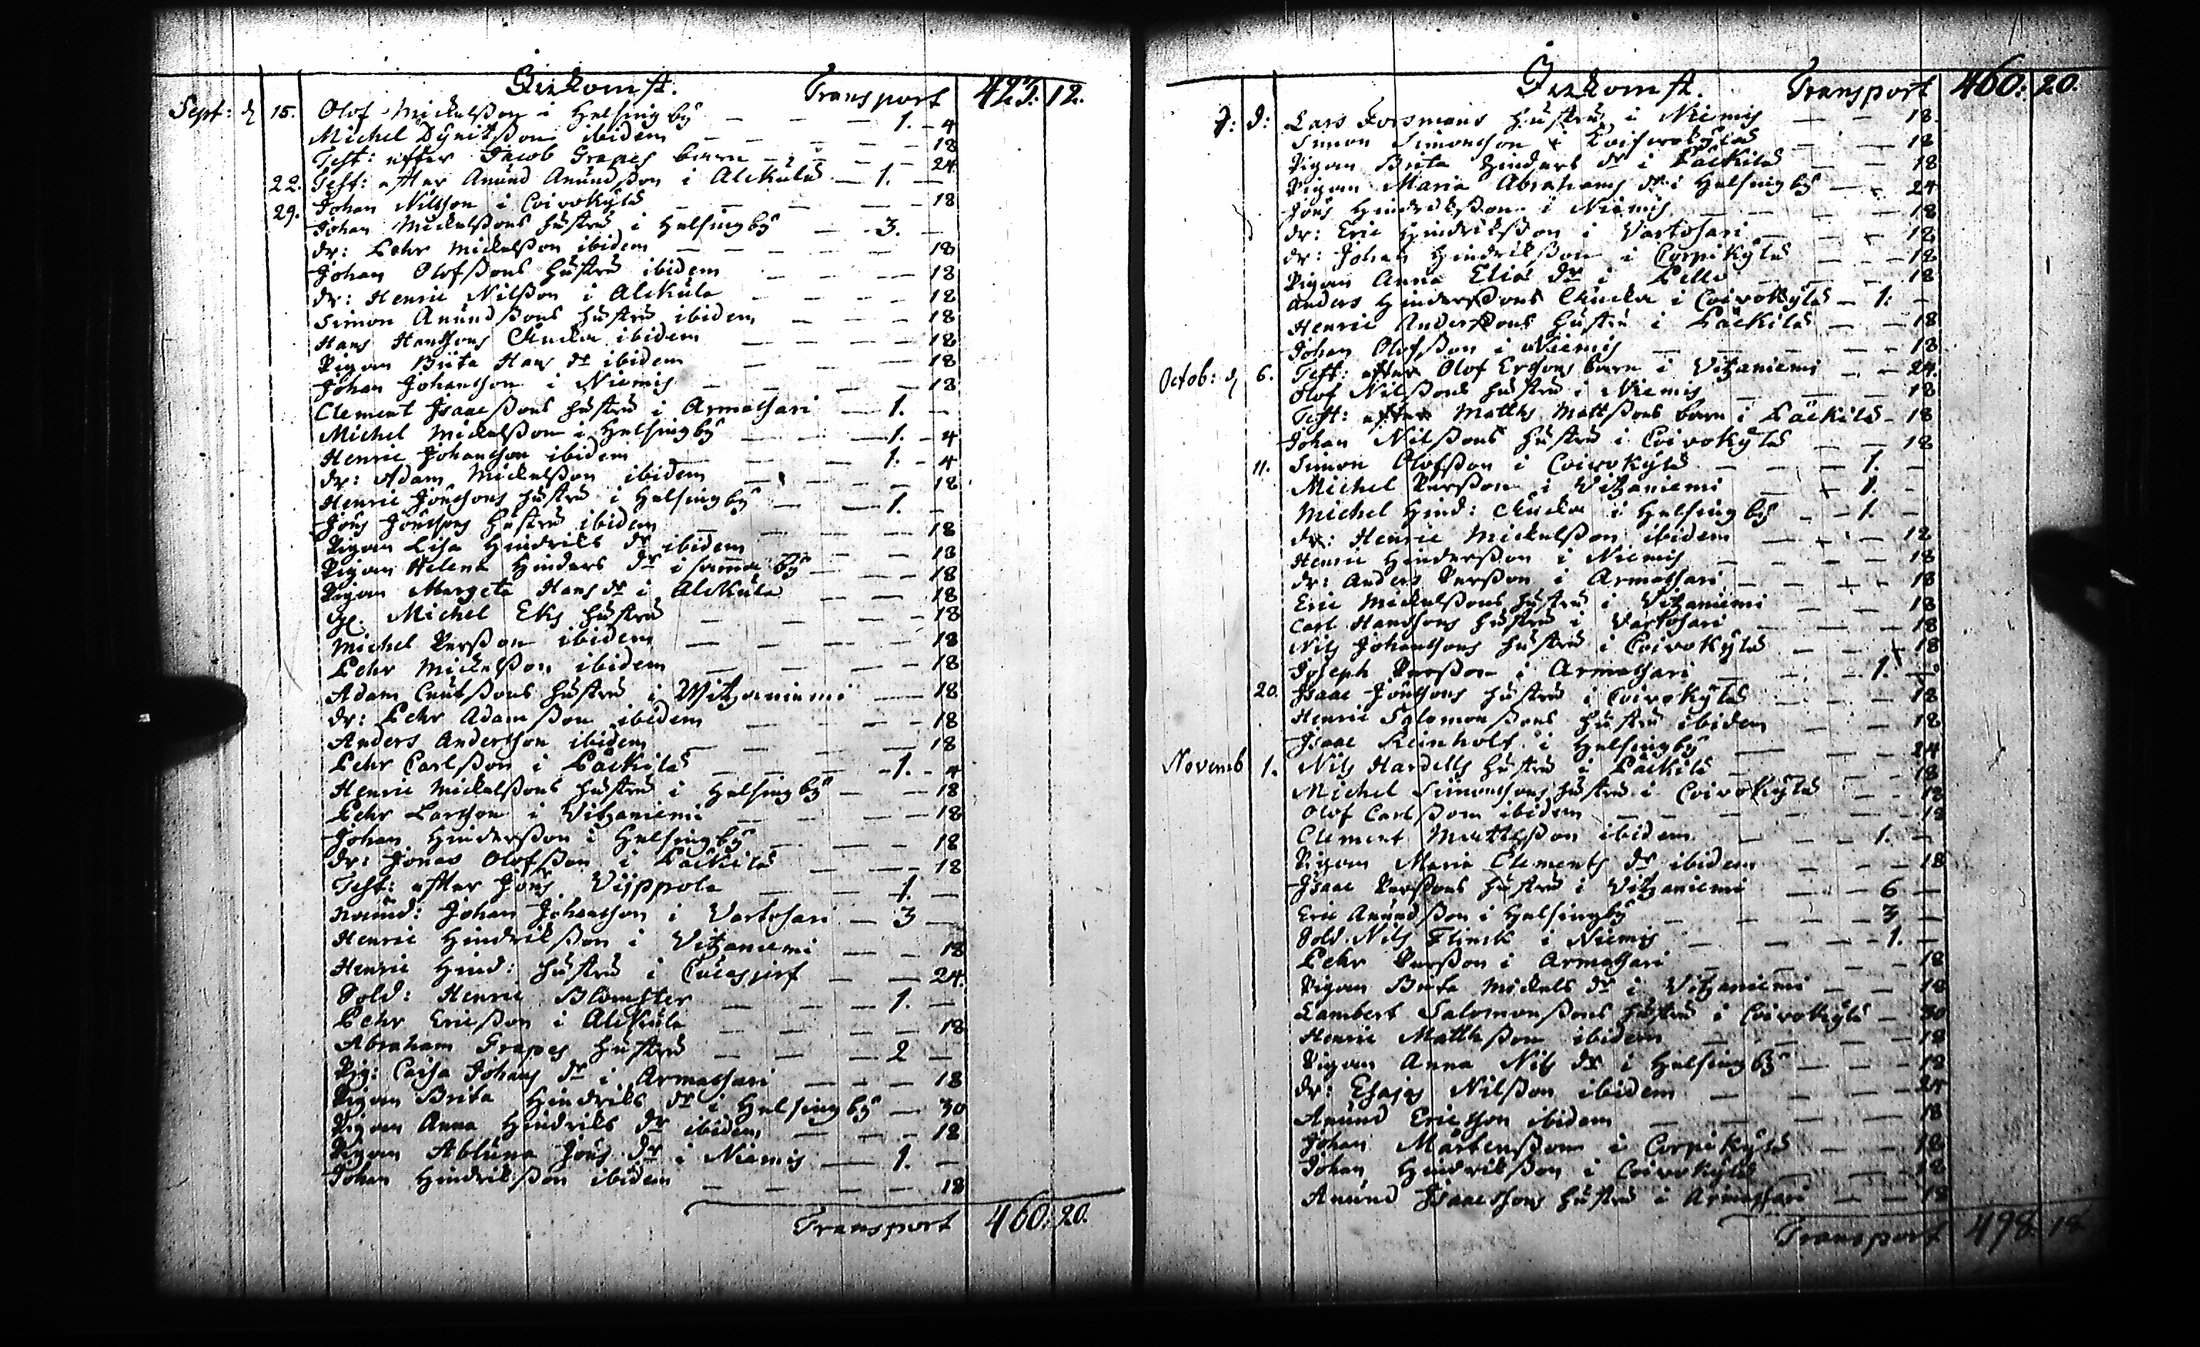 Inkomst. Transport 423: 12.
Sept: d 15. Olof Mickelsson i Helsingby — — 1. - 4
Michel ibidem — — — 18
Test: efter Jacob Grapes barn — — — 24
22. Test: efter Anund Anundsson i Alckula — 1. —
29. Johan Nilsson i Coivokylä — — — 18
Johan Mickelssons hustru i Helsingby — 3. —
dr: Pehr Mickelsson ibidem — — — 18
Johan Olofssons hustru ibidem — — — 18
dr: Henric Nilsson i Alckula — — — 18
Simon Anundssons hustru ibidem — — — 18
Hans Hanssons Encka ibidem — — — 18
Pigan Brita Hans dr ibidem — — — 18
Johan Johansson i Niemis — — — 18
Clement Isaacssons hustru i Armassari — 1. —
Michel Mickelsson i Helsingby — — 1. - 4
Henric Johansson ibidem — — 1. - 4
dr: Adam Mickelsson ibidem — — — 18
Henric Jönssons hustru i Helsingby — 1. —
Jöns Jönssons hustru ibidem — — — 18
Pigan Lisa Hindriks dr ibidem — — — 18
Pigan Helena Hinders dr i samma By — — 18
Pigan Margeta Hans dr i Alckula — — 18
Michel Eks hustru — — — 18
Michel Persson ibidem — — — 18
Pehr Mickelsson ibidem — — — 18
Adam Cnutssons hustru i Witzaniemi — — 18
dr: Pehr Adamsson ibidem — — — 18
Anders Andersson ibidem — — — 18
Pehr Carlsson i Päckilä — — 1. - 4
Henric Mickelssons hustru i Helsingby — — 18
Pehr Larsson i Vitzaniemi — — — 18
Johan Hindersson i Helsingby — — — 18
dr: Jonas Olofsson i Päckilä — — — 18
Test: efter Jöns Vijppola — — 1. —
Johan Johansson i Vartosari — 3 —
Henric Hindriksson i Vitzaniemi — — 18
Henric Hind: hustru i — — 24.
Sold: Henric Blomster — — 1. —
Pehr Ericsson i Alckula — — — 18
Abraham Grapes hustru — — 2 —
Pig: Caisa Johans dr i Armassari — — 18
Pigan Brita Hindriks dr i Helsingby — 30
Pigan Anna Hindriks dr ibidem — — 18
Pigan Abluna Jöns dr i Niemis — 1. —
Johan Hindriksson ibidem — — — 18
Transport 460: 20.
Inkomst. Transport 460: 20.
d: d: Lars Forsmans hustru i Niemis — — 18.
Simon Simonsson i Coivokylä — — 18
Pigan Brita Hinders dr i Päckilä — — 18
Pigan Maria Abrahams dr i Helsingby — — 24
Jöns Hindriksson i Niemis — — — 18
dr: Eric Hindriksson i Vartosari — — 18
dr: Johan Hindriksson i Corpikylä — — 18
Pigan Anna Elias dr i Pello — — 18
Anders Hinderssons Encka i Coivokylä — 1. —
Henric Anderssons hustru i Päckilä — — 18
Johan Olofsson i Niemis — — — 18
Octob: d 6. Test: efter Olof Erssons barn i Vitzaniemi — — 24.
Olof Nilssons hustru i Niemis — — 18
Test: efter Matths Mattssons barn i Päckilä — 18
Johan Nilssons hustru i Coivokylä — — 18
11. Simon Olofsson i Coivokylä — — 1. —
Michel Persson i Vitzaniemi — — 1. —
Michel Hind: Encka i Helsingby — 1. —
dr: Henric Mickelsson ibidem — — 12
Henric Hindersson i Niemis — — — 18
dr: Anders Persson i Armassari — — 18
Eric Mickelssons hustru i Vitzaniemi — — 18
Carl Hanssons hustru i Vartosari — — 18
Nils Johanssons hustru i Coivokylä — — 18
Joseph Persson i Armassari — — 1. —
20. Isaac Jönssons hustru i Coivokylä — — 18
Henric Salomonssons hustru ibidem — — 18
Isaac Reinholt i Helsingby — — — 24
Novemb 1. Nils Hardells hustru i Päckilä — — 18
Michel Simonssons hustru i Coivokylä — — 18
Olof Carlsson ibidem — — — 18
Clement Mattsson ibidem — — 1. —
Pigan Maria Clements dr ibidem — — 18
Isaac Perssons hustru i Vitzaniemi — 6 —
Eric Anundsson i Helsingby — — 3 —
Sold. Nils Flinck i Niemis — — 1. —
Pehr Persson i Armassari — — — 18
Pigan Brita Mickels dr i Vitzaniemi — — 18
Lambert Salomonssons hustru i Coivokylä — 30
Henric Matthsson ibidem — — — 18
Pigan Anna Nils dr i Helsingby — — 18
dr: Esajas Nilsson ibidem — — — 24
Anund Ericsson ibidem — — — 18
Johan Mårtensson i Corpikylä — — 18
Johan Hindriksson i Coivokylä — — 18
Anund Isaacssons hustru i Armassari — — 18
Transport 498. 18